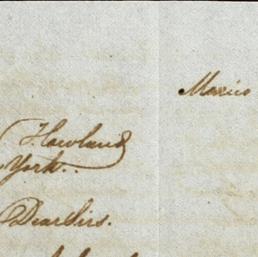 Mexico
Howland
York.
Dear Sirs.